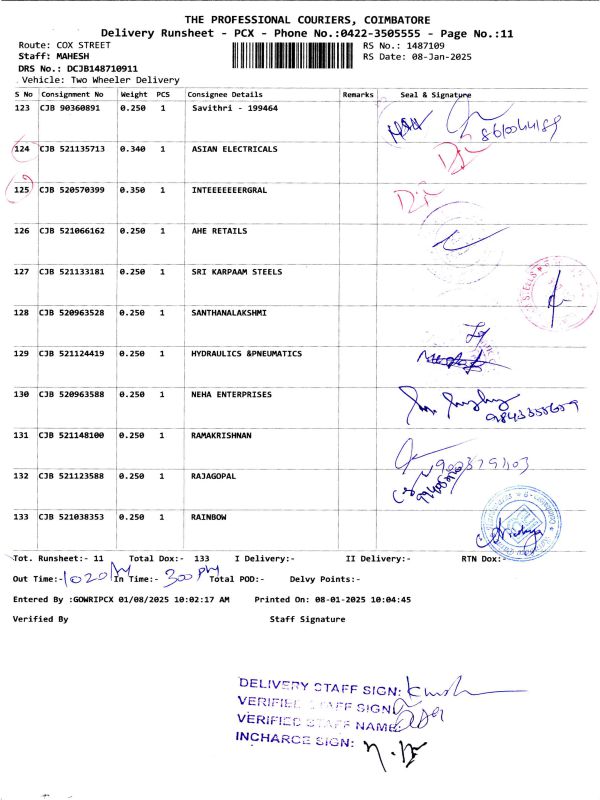 THE PROFESSIONAL COURIERS, COIMBATORE
Delivery Runsheet - PCX - Phone No.:0422-3505555 - Page No.:11
Route: COX STREET RS No.: 1487109
Staff: MAHESH RS Date: 08-Jan-2025
DRS No.: DCJB148710911
Vehicle: Two Wheeler Delivery
S No Consignment No Weight PCS Consignee Details Remarks Seal & Signature
123 CJB 90360891 0.250 1 Savithri - 199464
124 CJB 521135713 0.340 1 ASIAN ELECTRICALS
125 CJB 520570399 0.350 1 INTEEEEEEERGRAL
126 CJB 521066162 0.250 1 AHE RETAILS
127 CJB 521133181 0.250 1 SRI KARPAAM STEELS
128 CJB 520963528 0.250 1 SANTHANALAKSHMI
129 CJB 521124419 0.250 1 HYDRAULICS &PNEUMATICS
130 CJB 520963588 0.250 1 NEHA ENTERPRISES
131 CJB 521148100 0.250 1 RAMAKRISHNAN
132 CJB 521123588 0.250 1 RAJAGOPAL
133 CJB 521038353 0.250 1 RAINBOW
Tot. Runsheet:- 11 Total Dox:- 133 I Delivery:- II Delivery:- RTN Dox:-
Out Time:- 1020 In Time:- 300 PM Total POD:- Delvy Points:-
Entered By :GOWRIPCX 01/08/2025 10:02:17 AM Printed On: 08-01-2025 10:04:45
Verified By Staff Signature
DELIVERY STAFF SIGN:
VERIFIED STAFF SIGN
VERIFIED STAFF NAME:
INCHARGE SIGN: